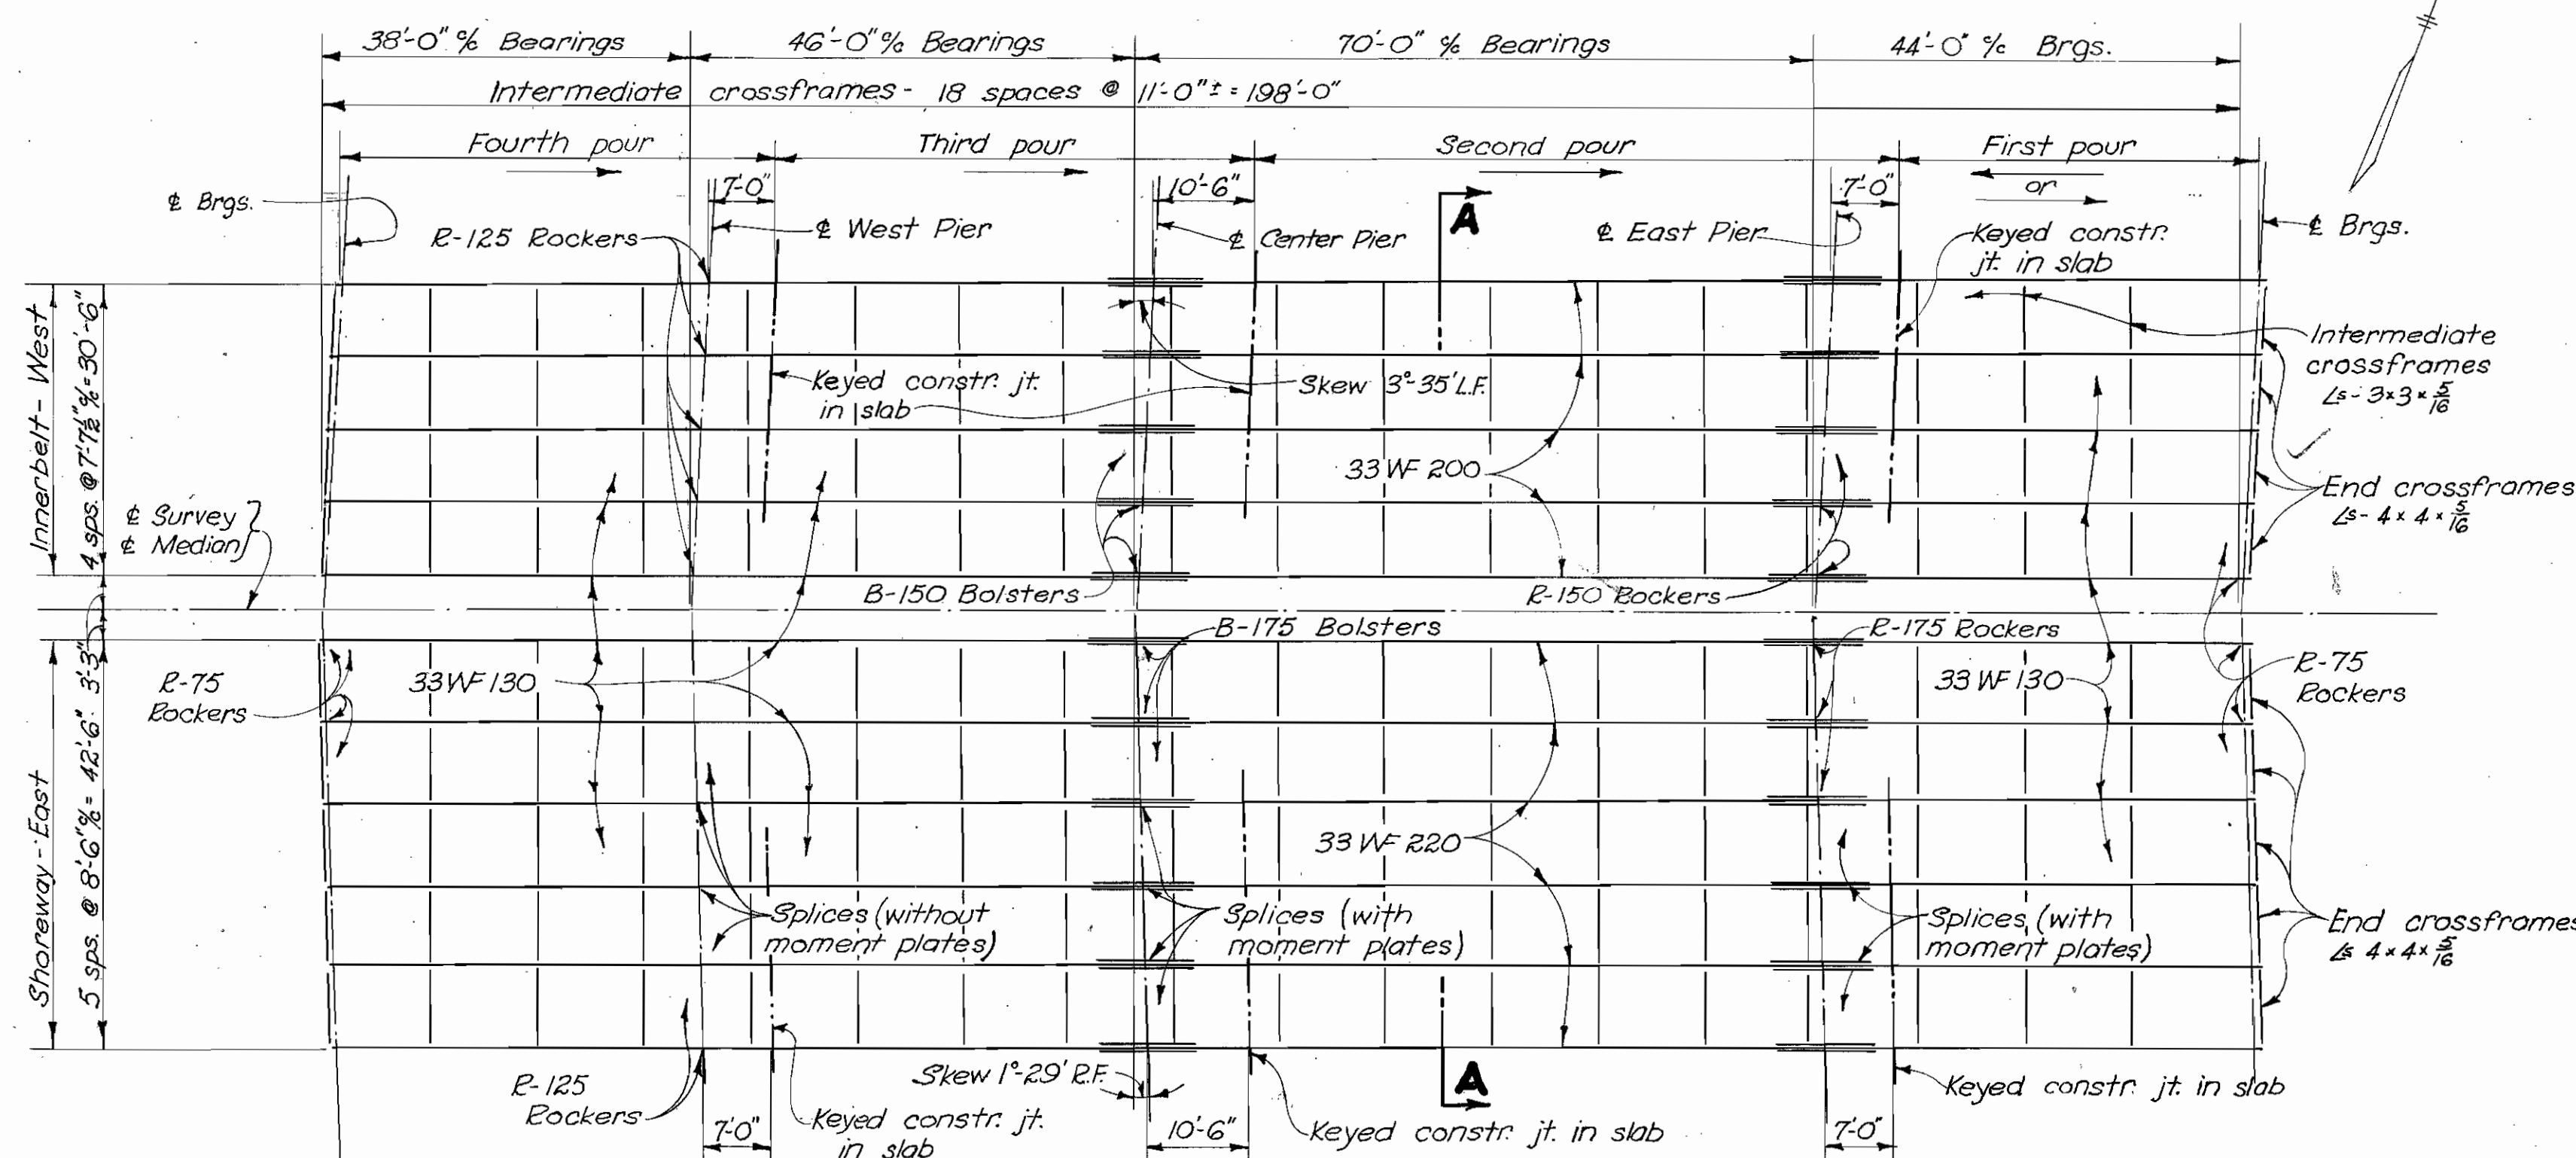 38'-0" c/c Bearings
46'-0" c/c Bearings
70'-0" c/c Bearings
44'-0" c/c Brgs.
Intermediate crossframes - 18 spaces @ 11'-0"± = 198'-0"
Fourth pour
Third pour
Second pour
First pour
or
7'-0"
10'-6"
7'-0"
℄ Brgs.
R-125 Rockers
℄ West Pier
℄ Center Pier
A
℄ East Pier
Keyed constr.
jt. in slab
℄ Brgs.
Innerbelt - West
4 sps. @ 7'-7½" c/c = 30'-6"
Keyed constr. jt.
in slab
Skew 3°-35' L.F.
Intermediate
crossframes
∠s - 3 x 3 x 5/16
33 WF 200
End crossframes
∠s - 4 x 4 x 5/16
℄ Survey
℄ Median
B-150 Bolsters
R-150 Rockers
3'-3"
B-175 Bolsters
R-175 Rockers
R-75
Rockers
33 WF 130
33 WF 130
R-75
Rockers
Shoreway - East
5 sps. @ 8'-6" c/c = 42'-6"
33 WF 220
Splices (without
moment plates)
Splices (with
moment plates)
Splices (with
moment plates)
End crossframes
∠s 4 x 4 x 5/16
R-125
Rockers
Skew 1°-29' R.F.
A
Keyed constr. jt. in slab
7'-0"
Keyed constr. jt.
in slab
10'-6"
Keyed constr. jt. in slab
7'-0"